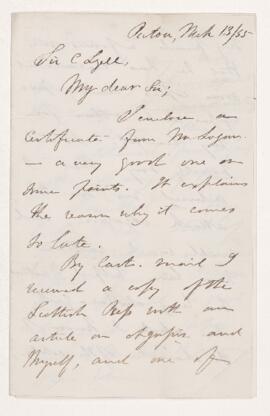 Pictou, Mch 13/55
Sir C Lyell,
My dear Sir;
I enclose a
Certificate from Mr Logan
— a very good one on
some points. It explains
the reason why it comes
so late.
By last mail I
received a copy of the
Scottish Press with an
article on Agassiz and
Myself, and one of